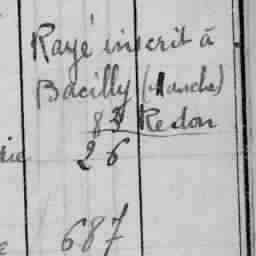 Rayé inscrit à
Bacilly (Manche)
Redon
26
687